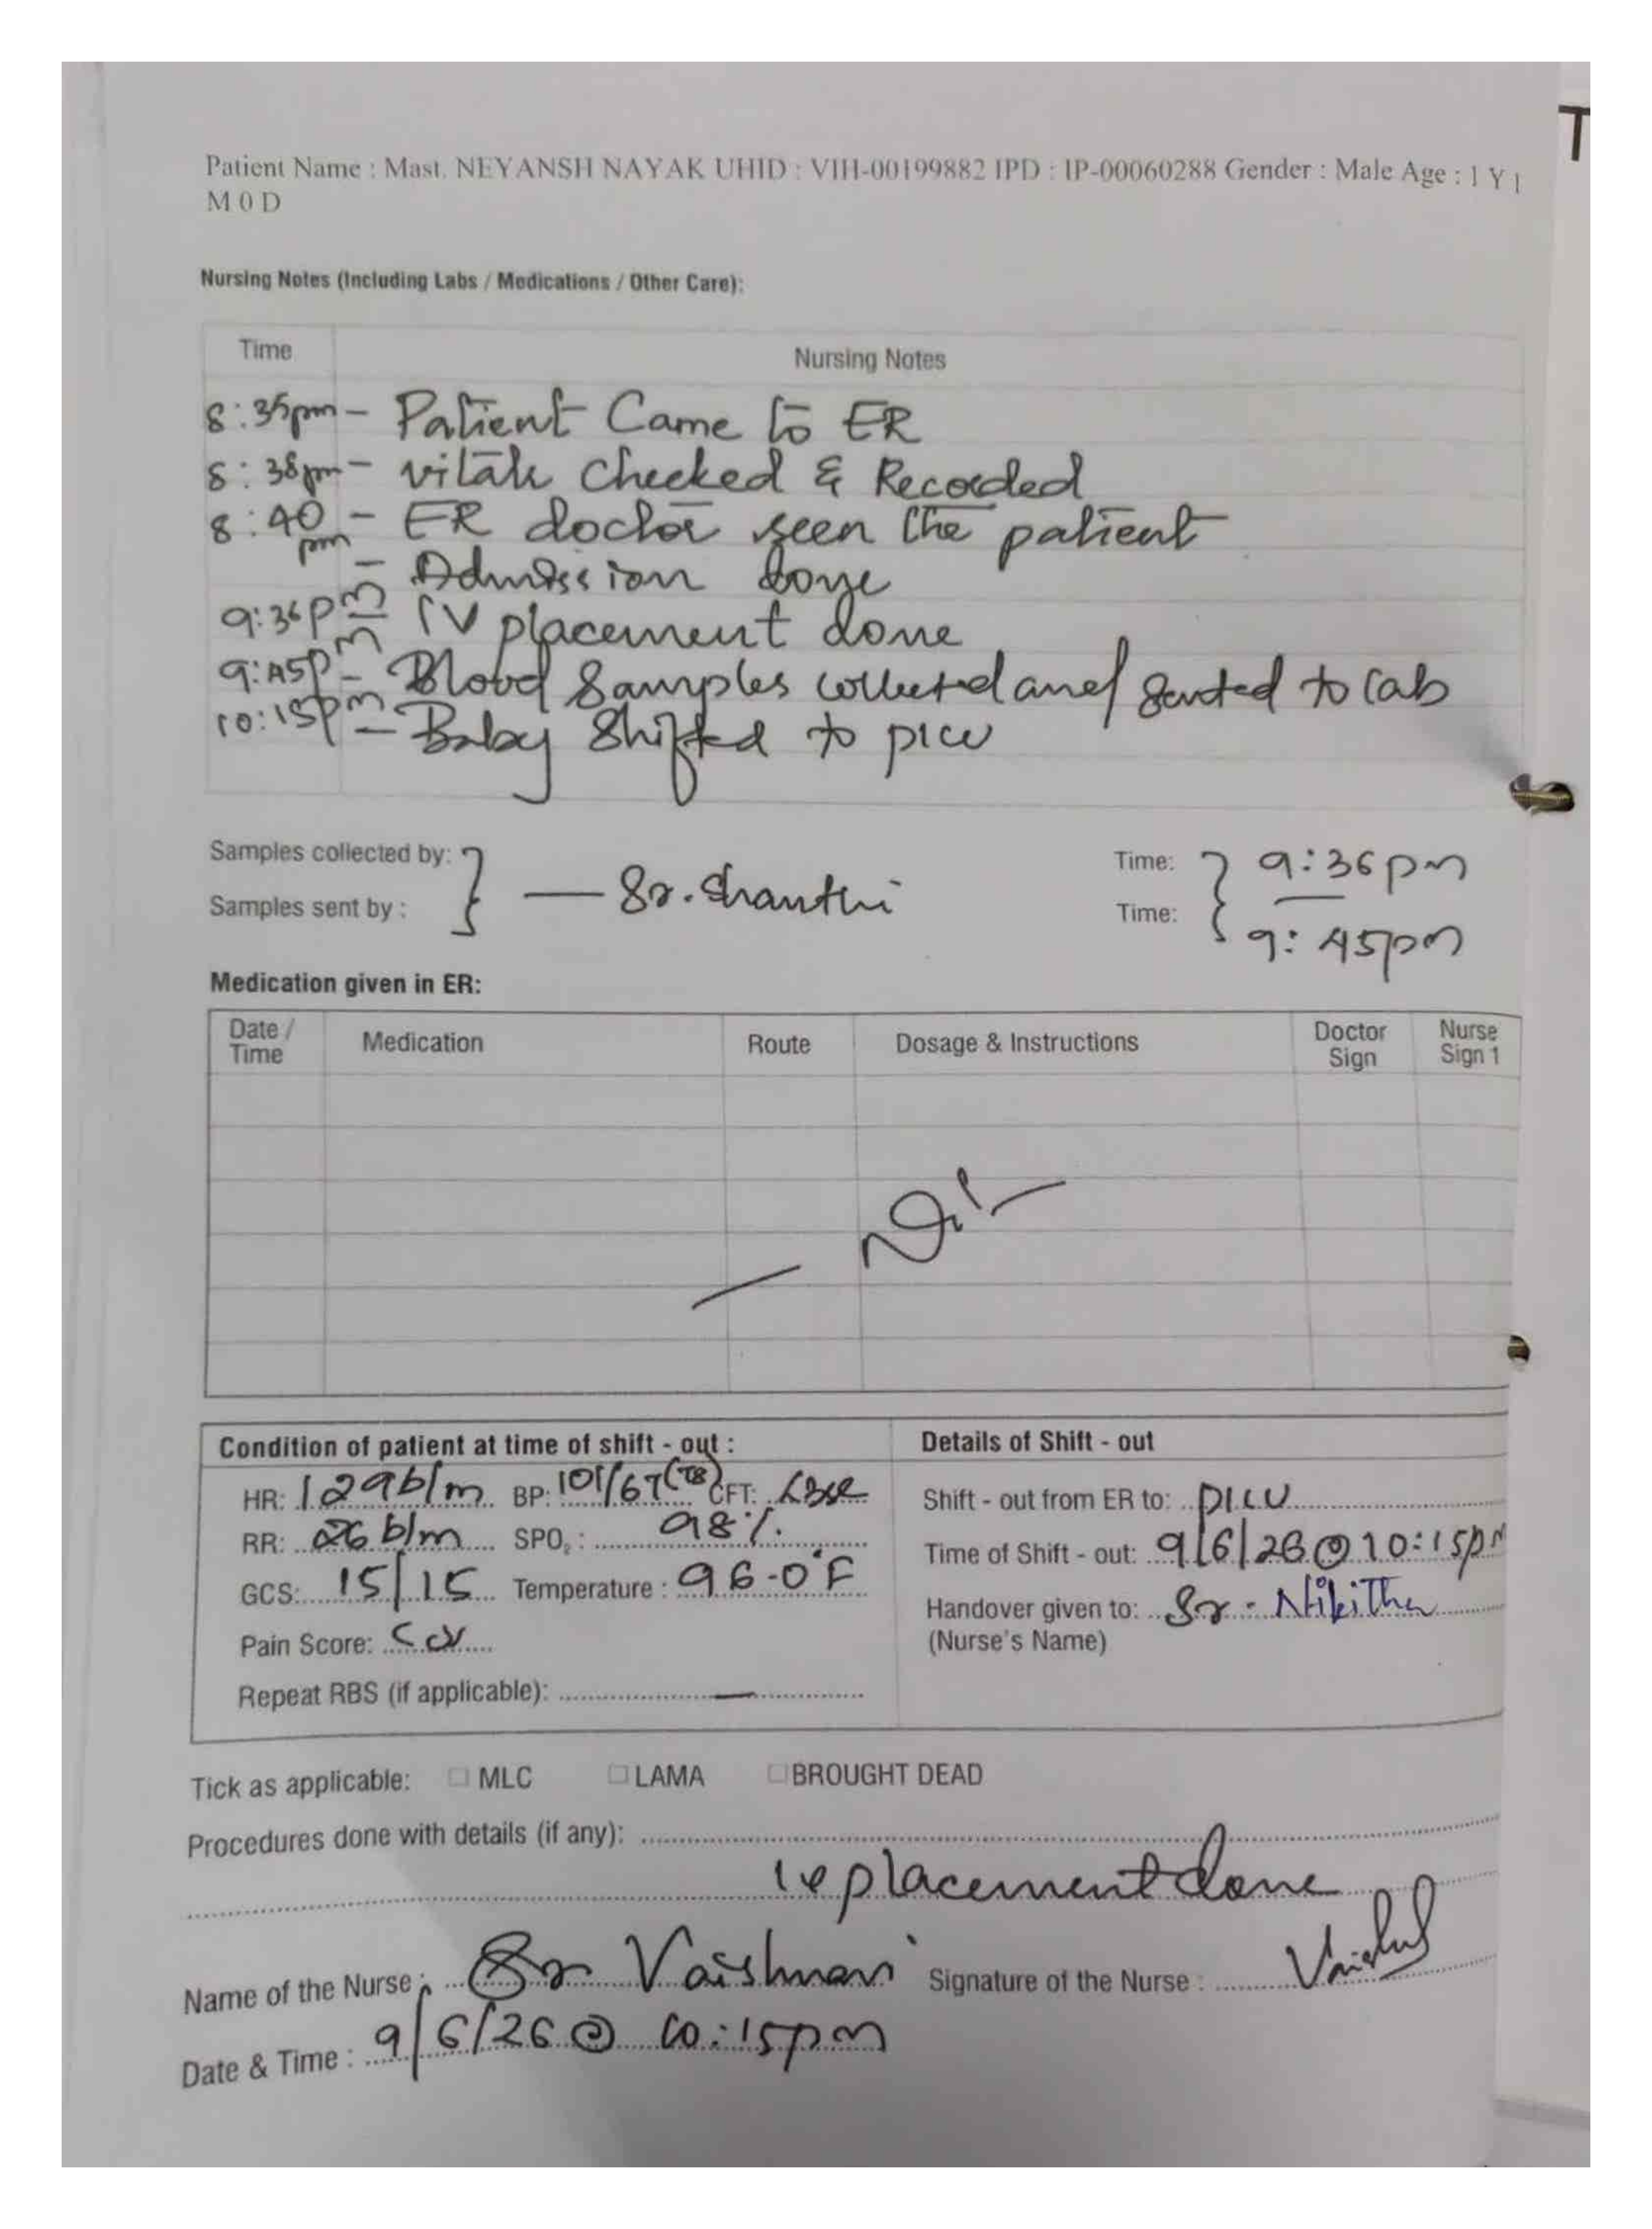 T
Patient Name : Mast. NEYANSH NAYAK UHID : VIH-00199882 IPD : IP-00060288 Gender : Male Age : 1 Y 1
M 0 D
Nursing Notes (Including Labs / Medications / Other Care):
Time Nursing Notes
8:35pm - Patient Came to ER
8:38pm - vitals Checked & Recorded
8:40 pm - ER doctor seen the patient
- Admission done
9:36pm - IV placement done
9:45pm - Blood Samples collected and sented to lab
10:15pm - Baby Shifted to PICU
Samples collected by: Time: 9:36pm
Samples sent by : } — Sr. Shanthi Time: 9:45pm
Medication given in ER:
Date / Time Medication Route Dosage & Instructions Doctor Sign Nurse Sign 1
— Nil —
Condition of patient at time of shift - out : Details of Shift - out
HR: 129b/m BP: 101/67 CFT: Shift - out from ER to: PICU
RR: 26 b/m SPO2 : 98% Time of Shift - out: 9/6/26 @ 10:15pm
GCS: 15/15 Temperature : 96.0°F Handover given to: Sr. Nikitha
Pain Score: (Nurse's Name)
Repeat RBS (if applicable): —
Tick as applicable: MLC LAMA BROUGHT DEAD
Procedures done with details (if any):
placement done
Name of the Nurse : Sr Vaishnavi Signature of the Nurse :
Date & Time : 9/6/26 @ 10:15pm